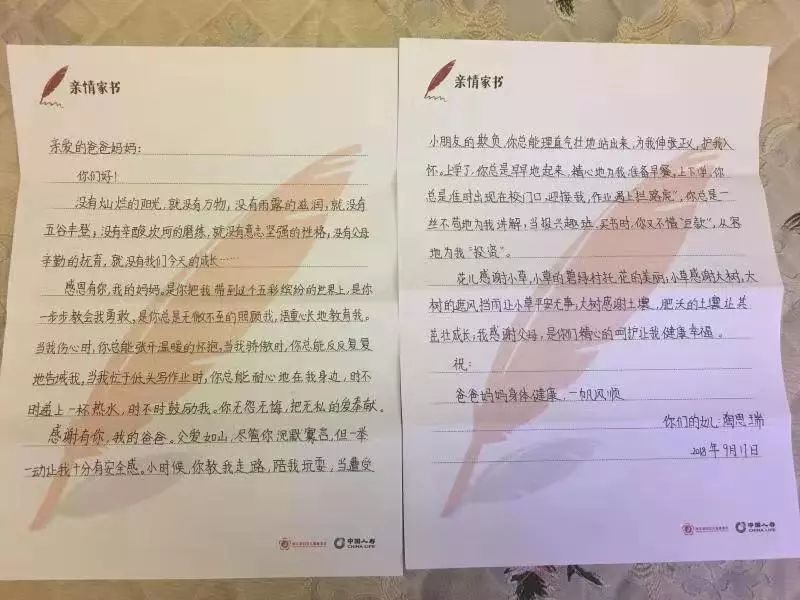 亲情家书
亲爱的爸爸妈妈:
你们好!
没有灿烂的阳光,就没有万物,没有雨露的滋润,就没有
五谷丰登;没有辛酸坎坷的磨练,就没有意志坚强的性格,没有父母
辛勤的抚育,就没有我们今天的成长……
感恩有你,我的妈妈。是你把我带到这个五彩缤纷的世界上,是你
一步步教会我勇敢。是你总是无微不至的照顾我,语重心长地教育我。
当我伤心时,你总能张开温暖的怀抱,当我骄傲时,你总能反反复复
地告诫我,当我忙于低头写作业时,你总能耐心地在我身边,时不
时递上一杯热水,时不时鼓励我。你无怨无悔,把无私的爱奉献。
感谢有你,我的爸爸。父爱如山,尽管你沉默寡言,但一举
一动让我十分有安全感。小时候,你教我走路,陪我玩耍,当遭受
中国人寿
CHINA LIFE
亲情家书
小朋友的欺负,你总能理直气壮地站出来,为我伸张正义,护我入
怀。上学了,你总是早早地起来,精心地为我准备早餐,上下学,你
总是准时出现在校门口,迎接我,作业遇上“拦路虎”,你总是一
丝不苟地为我讲解;当报兴趣班、买书时,你又不惜“巨款”,从容
地为我“投资”。
花儿感谢小草,小草的碧绿衬托花的美丽;小草感谢大树,大
树的遮风挡雨让小草平安无事;大树感谢土壤,肥沃的土壤让其
茁壮成长;我感谢父母,是你们精心的呵护让我健康幸福。
祝:
爸爸妈妈身体健康,一帆风顺
你们的女儿:陶思瑞
2018年9月11日
中国人寿
CHINA LIFE